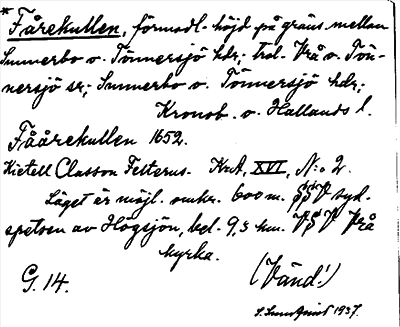 * Fårekullen, förmodl. höjd på gräns mellan
Sunnerbo o. Tönnersjö hdr; trol. Vrå o. Tön-
nersjö sr; Sunnerbo o. Tönnersjö hdr;
Kronob. o. Hallands l.
Fåårekullen 1652.
Kietell Classon Felterus. KrA, XVI, N:o 2.
Läget är möjl. omkr. 600 m. SSV syd-
spetsen av Högsjön, bel. 9,3 km. VSV Vrå
kyrka.
G. 14.
(Vänd!)
1937.